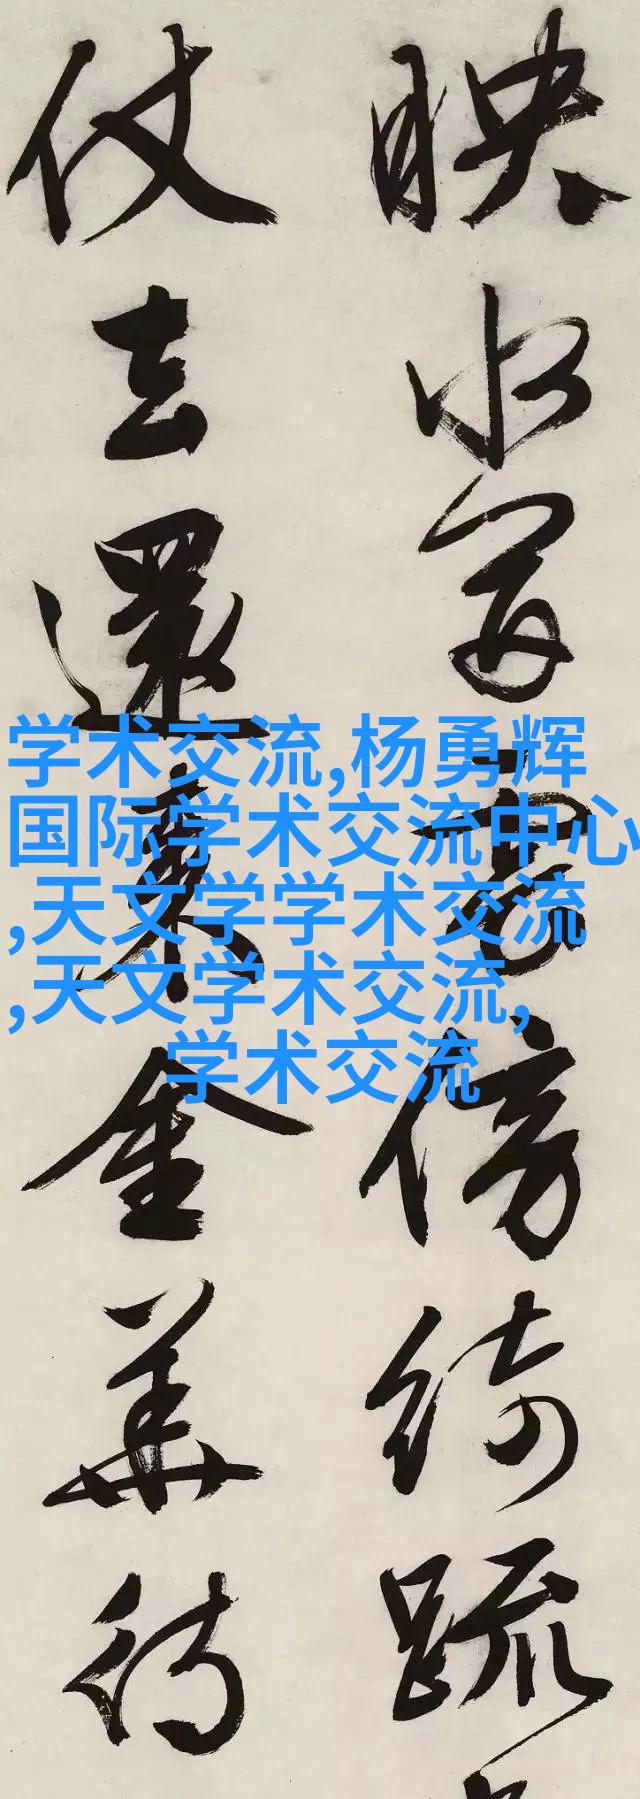 映水傍綺疏
仗去還金華待
学术交流,杨勇辉
国际学术交流中心
,天文学学术交流
,天文学术交流,
学术交流